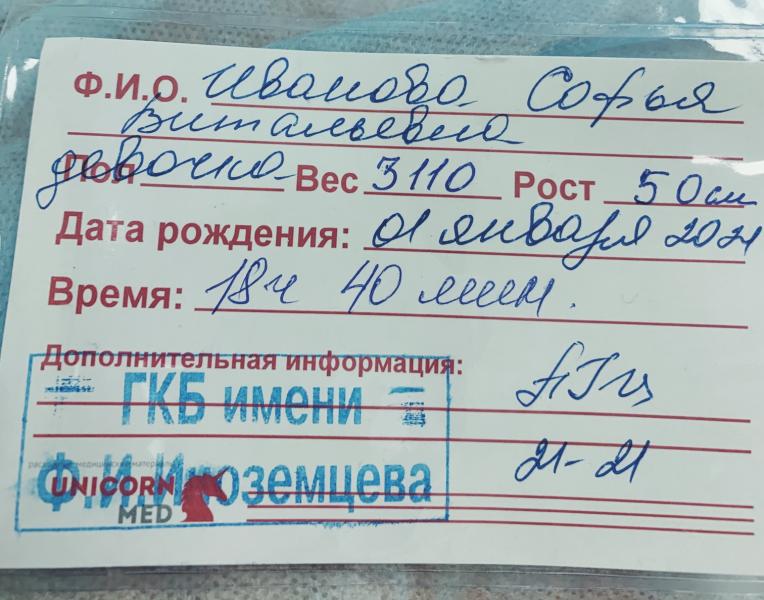 Ф.И.О. Иванова Софья
Витальевна
Пол девочка Вес 3110 Рост 50 см
Дата рождения: 01 января 2021
Время: 18ч 40 мин.
Дополнительная информация:
ГКБ имени
21-21
Ф.И.Иноземцева
UNICORN
MED